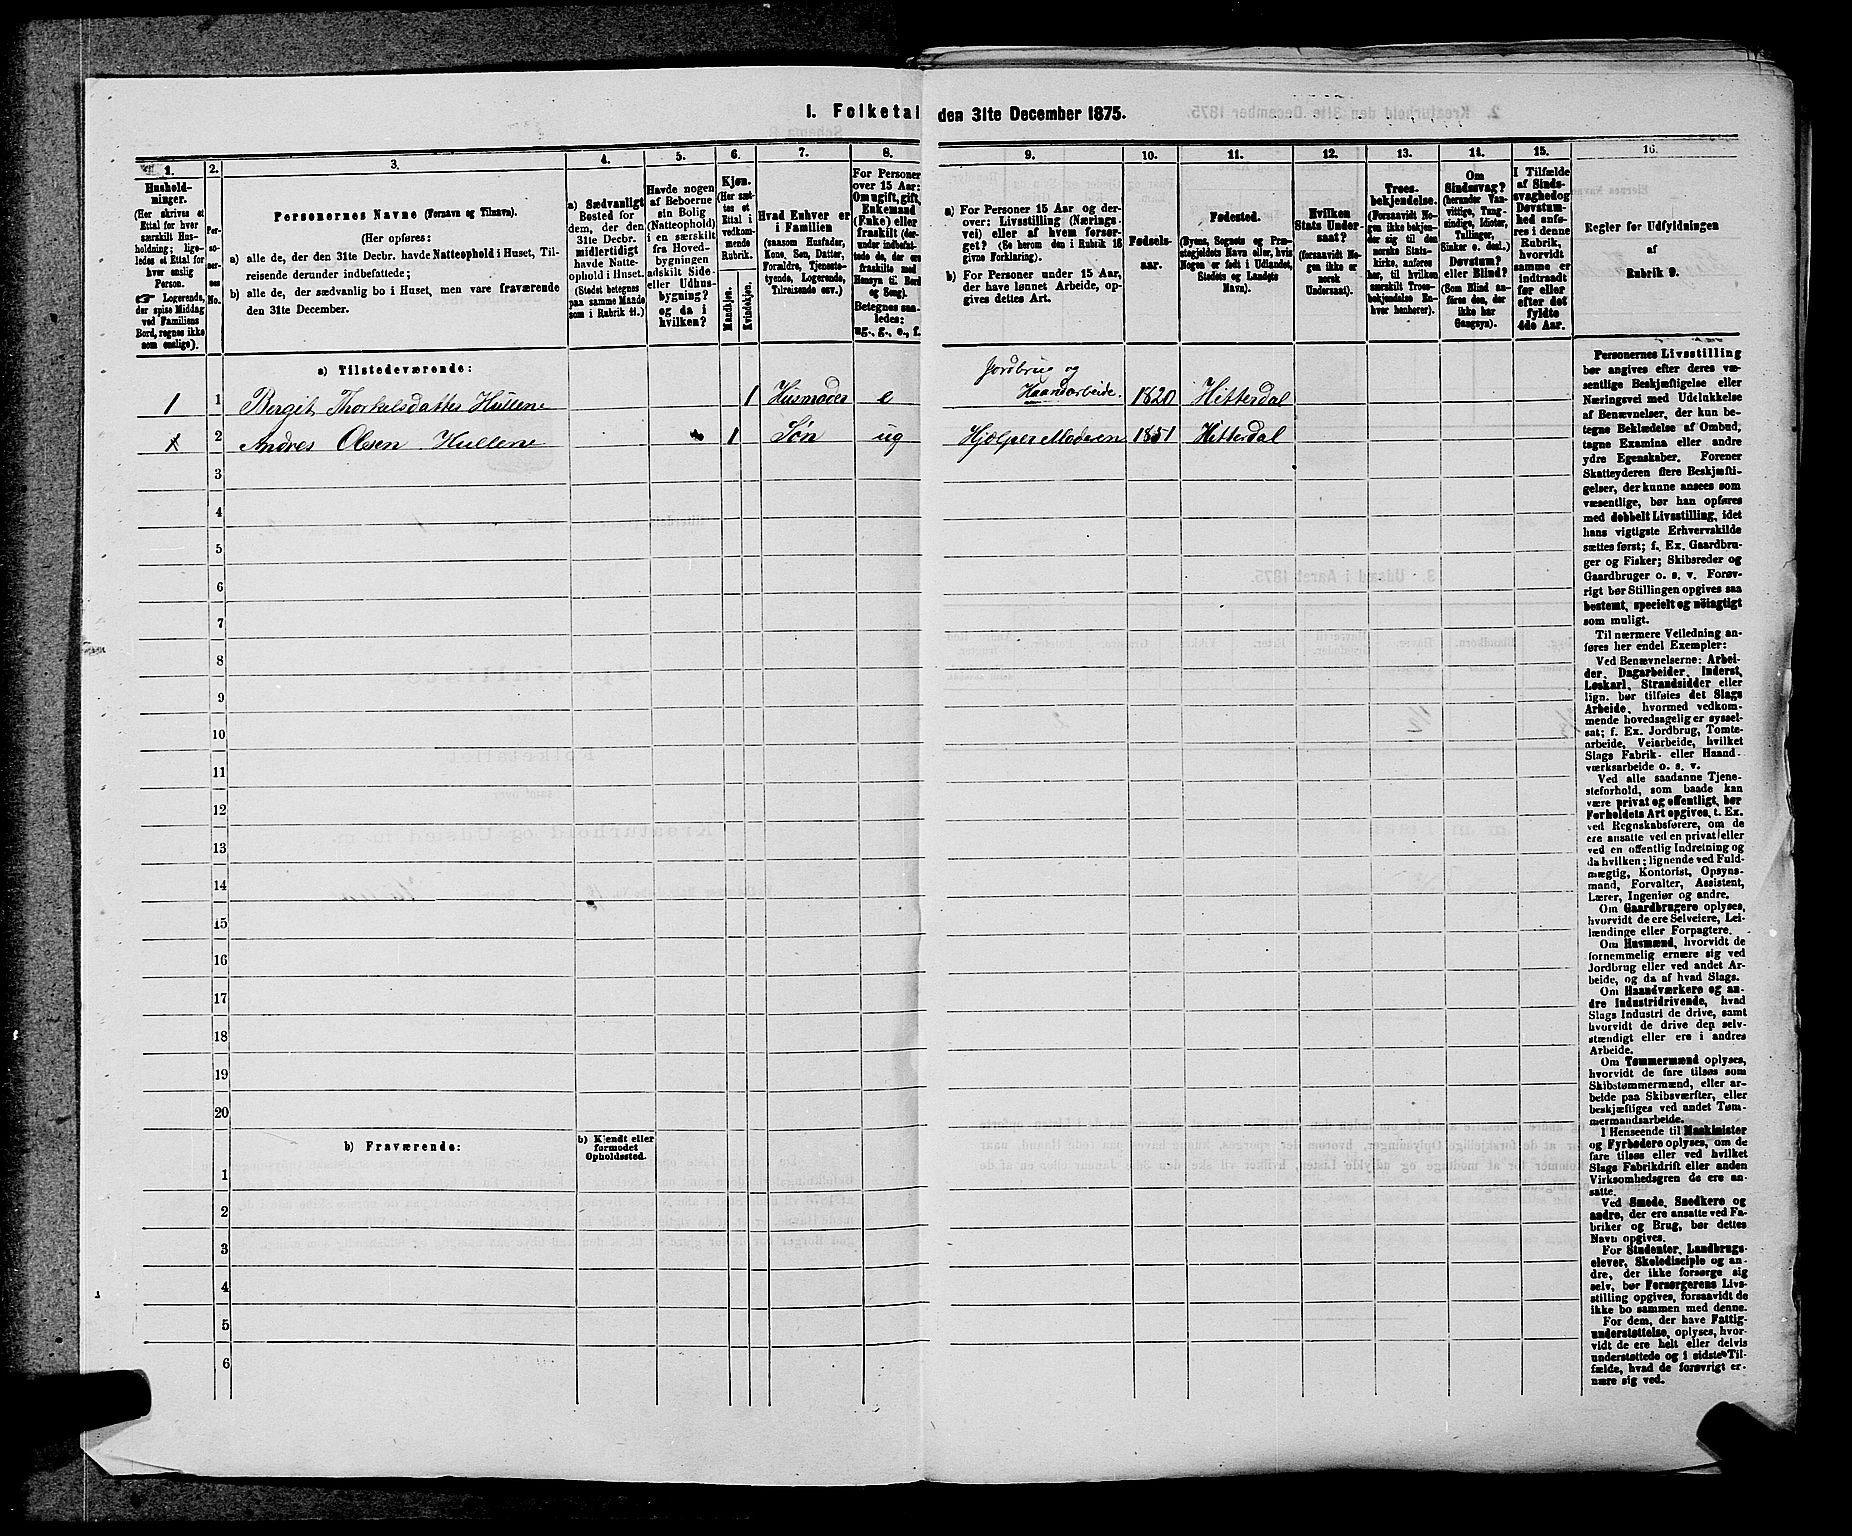 I. Folketal den 31te December 1875.
1.
Hushold-
ninger.
(Her skrives et
Ettal for hver
særskilt Hus-
holdning; lige-
ledes et Ettal for
hver enslig
Person.
☞ Logerende,
der spise Middag
ved Familiens
Bord, regnes ikke
som enslige).
2.
Per-
so-
ner-
nes
No.
3.
Personernes Navne (Fornavn og Tilnavn).
(Her opføres:
a) alle de, der den 31te Decbr. havde Natteophold i Huset, Til-
reisende derunder indbefattede;
b) alle de, der sædvanlig bo i Huset, men vare fraværende
den 31te December.
4.
a) Sædvanligt
Bosted for
dem, der den
31te Decbr.
midlertidigt
havde Natte-
ophold i Huset.
(Stedet betegnes
paa samme Maade
som i Rubrik 11.)
5.
Havde nogen
af Beboerne
sin Bolig
(Natteophold)
i en særskilt
fra Hoved-
bygningen
adskilt Side-
eller Udhus-
bygning?
og da i
hvilken?
6.
Kjøn.
(Her sæt-
tes et
Ettal i
vedkom-
mende
Rubrik.
Mandkjøn.
Kvindekjøn.
7.
Hvad Enhver er
i Familien
(saasom Husfader,
Kone, Søn, Datter,
Forældre, Tjeneste-
tyende, Logerende,
Tilreisende osv.)
8.
For Personer
over 15 Aar:
Om ugift, gift,
Enkemand
(Enke) eller
fraskilt (der-
under indbefat-
tede de, der ere
fraskilte med
Hensyn til Bord
og Seng).
Betegnes saa-
ledes:
ug., g., e., f.
9.
a) For Personer 15 Aar og der-
over: Livsstilling (Nærings-
vei) eller af hvem forsør-
get? (Se herom den i Rubrik 16
givne Forklaring).
b) For Personer under 15 Aar,
der have lønnet Arbeide, op-
gives dettes Art.
10.
Fødsels-
aar.
11.
Fødested.
(Byens, Sognets og Præ-
stegjeldets Navn eller, hvis
Nogen er født i Udlandet,
Stedets og Landets
Navn).
12.
Hvilken
Stats Under-
saat?
(forsaavidt No-
gen ikke er
norsk
Undersaat).
13.
Troes-
bekjendelse.
(Forsaavidt No-
gen ikke bekjen-
der sig til den
norske Stats-
kirke, anføres
her, til hvilken
særskilt Troes-
bekjendelse En-
hver henhører).
14.
Om
Sindssvag?
(herunder Van-
vittige, Tung-
sindige, Idioter,
Tullinger,
Sinker o. desl.)
Døvstum?
eller Blind?
(Som Blind an-
føres den, der
ikke har
Gangsyn).
15.
I Tilfælde
af Sinds-
svaghed og
Døvstum-
hed anfø-
res i denne
Rubrik,
hvorvidt
samme er
indtraadt
før eller
efter det
fyldte
4de Aar.
16.
Regler for Udfyldningen
af
Rubrik 9.
a) Tilstedeværende:
1 1 Bergit Thorkelsdatter Hullene 1 Husmoder e Jordbrug og
Haandarbeide. 1820 Hitterdal
2 Andres Olsen Hullene 1 Søn ug Hjælper Moderen 1851 Hitterdal
3
4
5
6
7
8
9
10
11
12
13
14
15
16
17
18
19
20
b) Fraværende:
b) Kjendt eller
formodet
Opholdssted.
1
2
3
4
5
6
Personernes Livsstilling
bør angives efter deres væ-
sentlige Beskjæftigelse eller
Næringsvei med Udelukkelse
af Benævnelser, der kun be-
tegne Beklædelse af Ombud,
tagne Examina eller andre
ydre Egenskaber. Forener
Skatteyderen flere Beskjæfti-
gelser, der kunne ansees som
væsentlige, bør han opføres
med dobbelt Livsstilling, idet
hans vigtigste Erhvervskilde
sættes først; f. Ex. Gaardbru-
ger og Fisker; Skibsreder og
Gaardbruger o. s. v. Forøv-
rigt bør Stillingen opgives saa
bestemt, specielt og nöiagtigt
som muligt.
Til nærmere Veiledning an-
føres her endel Exempler:
Ved Benævnelserne: Arbei-
der, Dagarbeider, Inderst,
Løskarl, Strandsidder eller
lign. bør tilføies det Slags
Arbeide, hvormed vedkom-
mende hovedsagelig er syssel-
sat; f. Ex. Jordbrug, Tomte-
arbeide, Veiarbeide, hvilket
Slags Fabrik- eller Haand-
værksarbeide o. s. v.
Ved alle saadanne Tjene-
steforhold, som baade kan
være privat og offentligt, bør
Forholdets Art opgives, t. Ex.
ved Regnskabsførere, om de
ere ansatte ved en privat eller
ved en offentlig Indretning og
da hvilken; lignende ved Fuld-
mægtig, Kontorist, Opsyns-
mand, Forvalter, Assistent,
Lærer, Ingeniør og andre.
Om Gaardbrugere oplyses,
hvorvidt de ere Selveiere, Lei-
lændinge eller Forpagtere.
Om Husmænd, hvorvidt de
fornemmelig ernære sig ved
Jordbrug eller ved andet Ar-
beide, og da af hvad Slags.
Om Haandværkere og an-
dre Industridrivende, hvad
Slags Industri de drive, samt
hvorvidt de drive den selv-
stændigt eller ere i andres
Arbeide.
Om Tømmermænd oplyses,
hvorvidt de fare tilsøs som
Skibstømmermænd, eller ar-
beide paa Skibsværfter, eller
beskjæftiges ved andet Tøm-
mermandsarbeide.
I Henseende til Maskinister
og Fyrbødere oplyses, om de
fare tilsøs eller ved hvilket
Slags Fabrikdrift eller anden
Virksomhedsgren de ere an-
satte.
Ved Smede, Snedkere og
andre, der ere ansatte ved Fa-
briker og Brug, bør dettes
Navn opgives.
For Studenter, Landbrugs-
elever, Skoledisciple og an-
dre, der ikke forsørge sig
selv, bør Forsørgerens Livs-
stilling opgives, forsaavidt de
ikke bo sammen med denne.
For dem, der have Fattig-
understøttelse, oplyses, hvor-
vidt de ere helt eller delvis
understøttede og i sidste Til-
fælde, hvad de forøvrigt er-
nære sig ved.